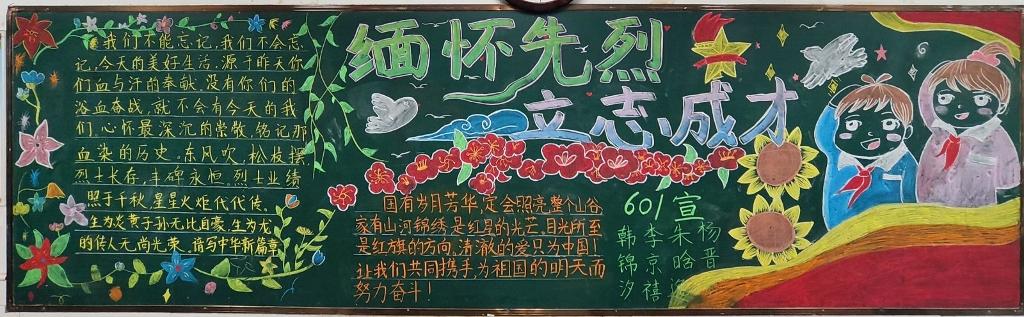 缅怀先烈
立志成才
我们不能忘记，我们不会忘
记，今天的美好生活，源于昨天你
们血与汗的奉献，没有你们的
浴血奋战，就不会有今天的我
们，心怀最深沉的崇敬，铭记那
血染的历史。东风吹，松枝摆，
烈士长存，丰碑永恒，烈士业绩
照千秋，星星火炬代代传。
生为炎黄子孙无比自豪，生为龙
的传人无尚光荣，谱写中华新篇章
国有岁月芳华，定会照亮整个山谷
家有山河锦绣，是红星的光芒，目光所至
是红旗的方向，清澈的爱只为中国！
让我们共同携手为祖国的明天而
努力奋斗！
601宣
韩李朱杨
锦京晗晋
汐禧